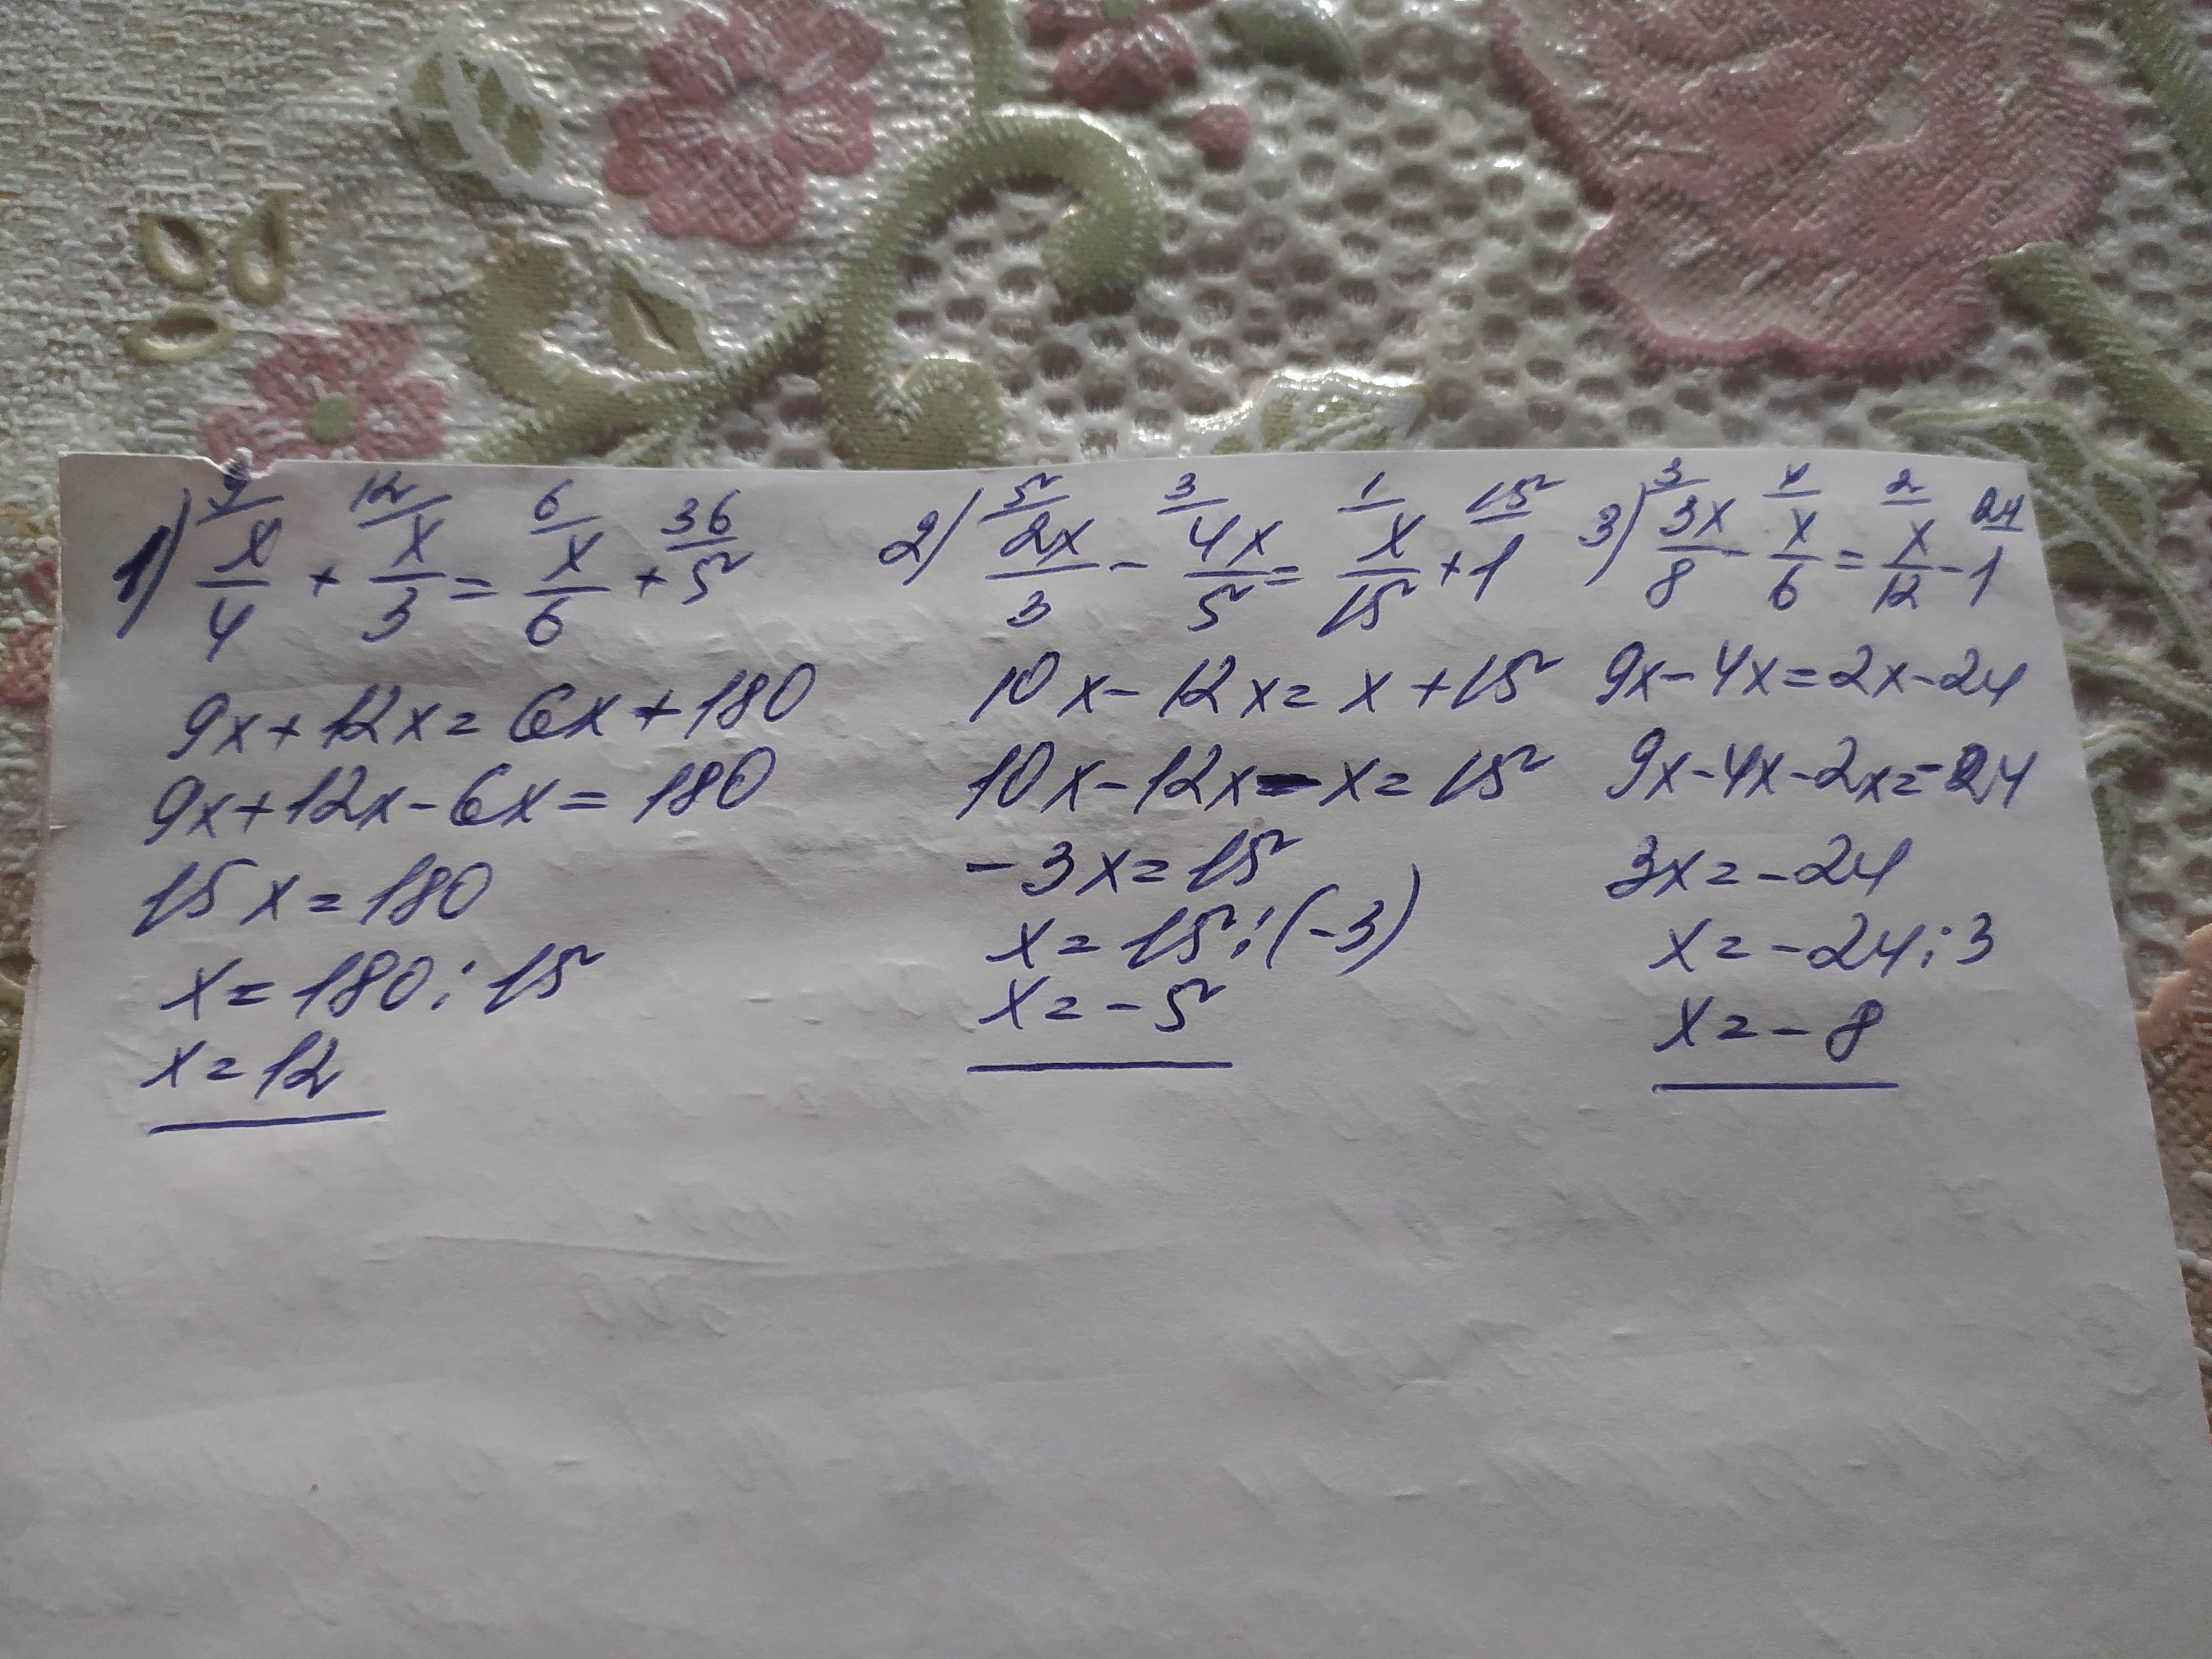 1) 9/ 12/ 6/ 36/
x/4 + x/3 = x/6 + 5
9x+12x=6x+180
9x+12x-6x=180
15x=180
x=180:15
x=12
2) 5/ 3/ 1/ 15/
2x/3 - 4x/5 = x/15 + 1
10x-12x=x+15
10x-12x-x=15
-3x=15
x=15:(-3)
x=-5
3) 3/ 4/ 2/ 24/
3x/8 - x/6 = x/12 - 1
9x-4x=2x-24
9x-4x-2x=-24
3x=-24
x=-24:3
x=-8